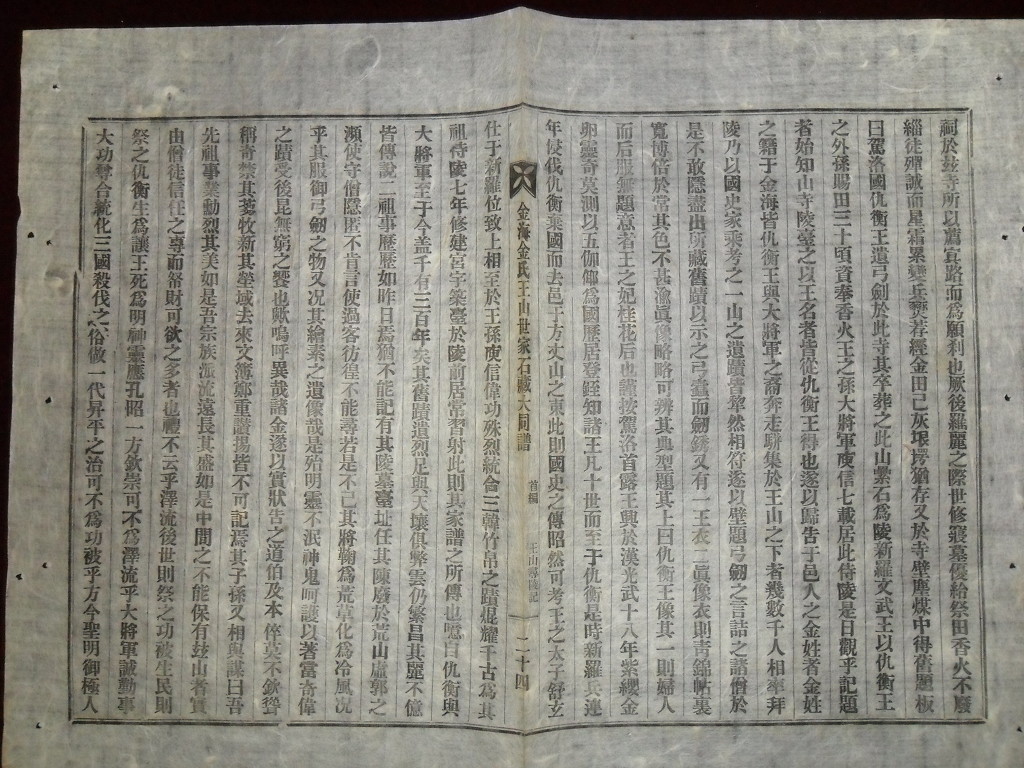 祠於玆寺所以薦眞路而爲願刹也厥後羅麗之際世修寢墓優給祭田香火不廢
緇徒殫誠而星霜累變兵燹荐經金田已灰垠堮猶存又於寺壁塵煤中得舊題板
曰駕洛國仇衡王遺弓劍於此寺其卒葬之此山纍石爲陵新羅文武王以仇衡王
之外孫賜田三十頃資奉香火王之孫大將軍庾信七載居此侍陵是日觀乎記題
者始知山寺陵臺之以王名者皆從仇衡王得也遂以歸告于邑人之金姓者金姓
之籍于金海皆仇衡王與大將軍之裔奔走騈集於王山之下者幾數千人相率拜
陵乃以國史家乘考之一山之遺蹟皆犂然相符遂以壁題弓劒之言詰之諸僧於
是不敢隱盡出所藏舊蹟以示之弓蠹而劒銹又有一王衣二眞像衣則靑錦帖裏
寬博倍於常其色不甚渝眞像略略可辨其典型題其上曰仇衡王像其一則婦人
而后服無題意者王之妃桂花后也謹按駕洛首露王興於漢光武十八年紫纓金
卵靈奇莫測以五伽倻爲國歷居登銍知諸王凡十世而至于仇衡是時新羅兵連
年侵伐仇衡棄國而去邑于方丈山之東此則國史之傳昭然可考王之太子舒玄
金海金氏王山世家石藏大同譜 首編 王山 記 二十四
仕于新羅位致上相至於王孫庾信偉功殊烈統合三韓竹帛之蹟焜耀千古爲其
祖侍陵七年修建宮宇築臺於陵前居常習射此則其家譜之所傳也噫自仇衡與
大將軍至于今盖千有三百年矣其舊蹟遺烈足與天壤俱弊雲仍繁昌其麗不億
皆傳說二祖事歷歷如昨日焉猶不能記有其陵墓臺址任其陳廢於荒山虛郭之
濱使守僧隱匿不肯言使過客彷徨不能尋若是不已其將鞠爲荒草化爲冷風况
乎其服御弓劒之物又况其繪素之遺像哉是殆明靈不泯神鬼呵護以著當奇偉
之蹟受後昆無窮之饗也歟嗚呼異哉諸金遂以實狀告之道伯及本倅莫不欽聳
稱奇禁其蒭牧新其塋域去來文簿鄭重讚揚皆不可記焉其子孫又相與謀曰吾
先祖事業勳烈其美如是吾宗族派流遠長其盛如是中間之不能保有玆山者實
由僧徒信任之專而帑財可欲之多者也禮不云乎澤流後世則祭之功被生民則
祭之仇衡生爲讓王死爲明神靈應孔昭一方欽崇可不爲澤流乎大將軍誠勤事
大功夸合統化三國殺伐之俗做一代昇平之治可不爲功被乎方今聖明御極人